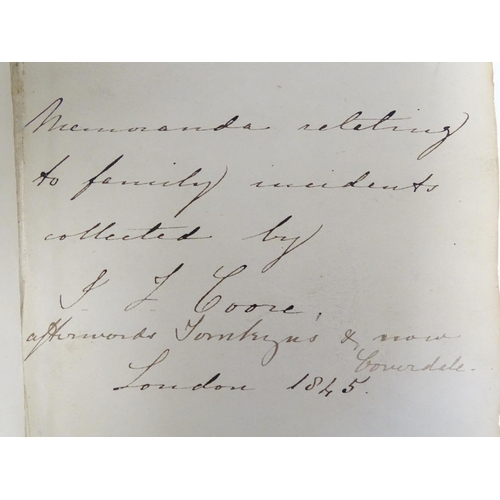 Memoranda relating
to family incidents
collected by
J L Coore,
afterwords Tomkyns & now
Coverdale.
London 1845.